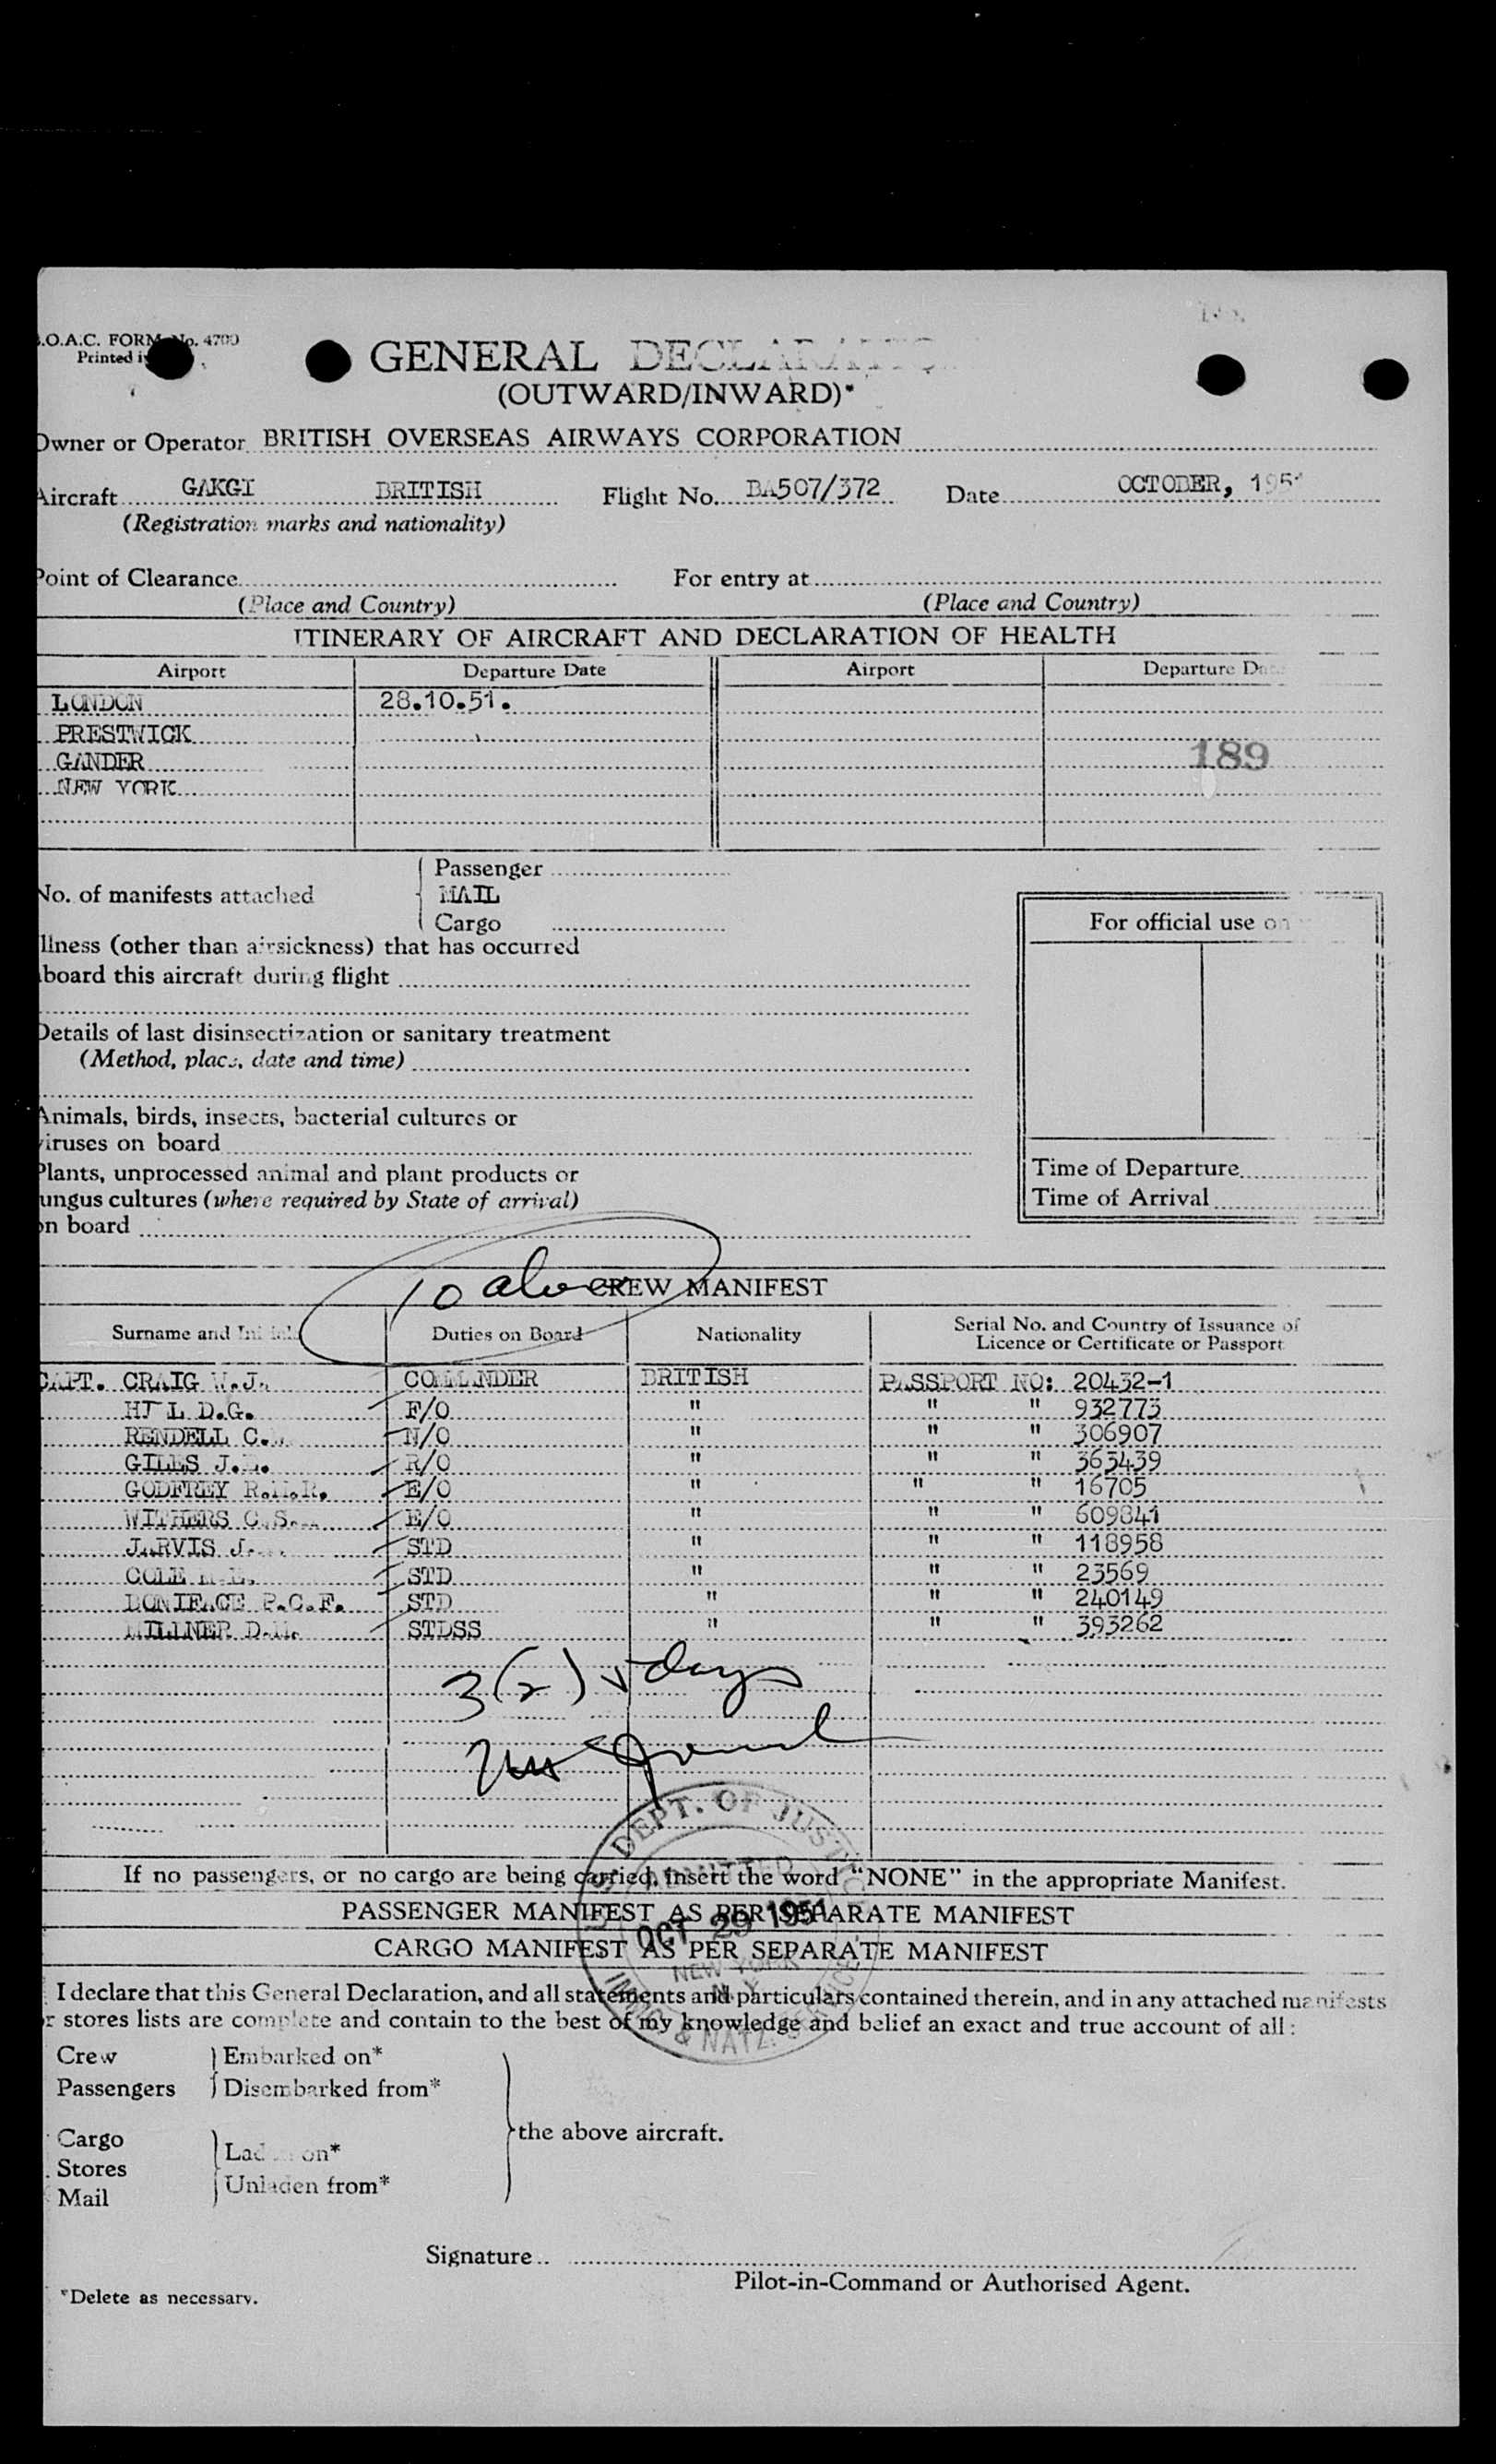 .O.A.C. FORM No. 4700
Printed i
GENERAL DECLARATIO
(OUTWARD/INWARD)*
Owner or Operator BRITISH OVERSEAS AIRWAYS CORPORATION
Aircraft GAKGI BRITISH Flight No. BA507/372 Date OCTOBER, 1951
(Registration marks and nationality)
Point of Clearance For entry at
(Place and Country) (Place and Country)
ITINERARY OF AIRCRAFT AND DECLARATION OF HEALTH
Airport Departure Date Airport Departure Dat
LONDON 28.10.51.
PRESTWICK
GANDER 189
NEW YORK
Passenger
No. of manifests attached MAIL
Cargo
For official use on
llness (other than airsickness) that has occurred
board this aircraft during flight
Details of last disinsectization or sanitary treatment
(Method, place, date and time)
Animals, birds, insects, bacterial cultures or
viruses on board
Plants, unprocessed animal and plant products or
ungus cultures (where required by State of arrival)
on board
Time of Departure
Time of Arrival
10 above CREW MANIFEST
Surname and Initials Duties on Board Nationality Serial No. and Country of Issuance of
Licence or Certificate or Passport
CAPT. CRAIG W.J. COMMANDER BRITISH PASSPORT NO: 20432-1
D.G. F/O " " " 932773
RENDELL C. N/O " " " 306907
GILES J. R/O " " " 363439
GODFREY R.M.R. E/O " " " 16705
WITHERS C.S. E/O " " " 609841
JARVIS J. STD " " " 118958
COLE STD " " " 23569
BONIFACE P.C.F. STD " " " 240149
MILLNER D.M. STDSS " " " 393262
3(2) days
U.S. DEPT. OF JUSTICE
ADMITTED
OCT 29 1951
NEW YORK
N.Y.
IMMIG. & NATZ. SERVICE
If no passengers, or no cargo are being carried, insert the word "NONE" in the appropriate Manifest.
PASSENGER MANIFEST AS PER SEPARATE MANIFEST
CARGO MANIFEST AS PER SEPARATE MANIFEST
I declare that this General Declaration, and all statements and particulars contained therein, and in any attached manifests
r stores lists are complete and contain to the best of my knowledge and belief an exact and true account of all:
Crew Embarked on*
Passengers Disembarked from*
Cargo the above aircraft.
Stores Laden on*
Mail Unladen from*
Signature
Pilot-in-Command or Authorised Agent.
*Delete as necessary.